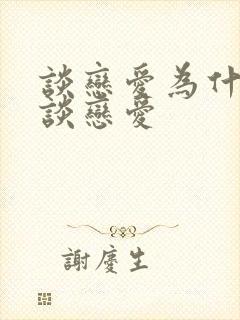 談戀愛為什
談戀愛
謝慶生